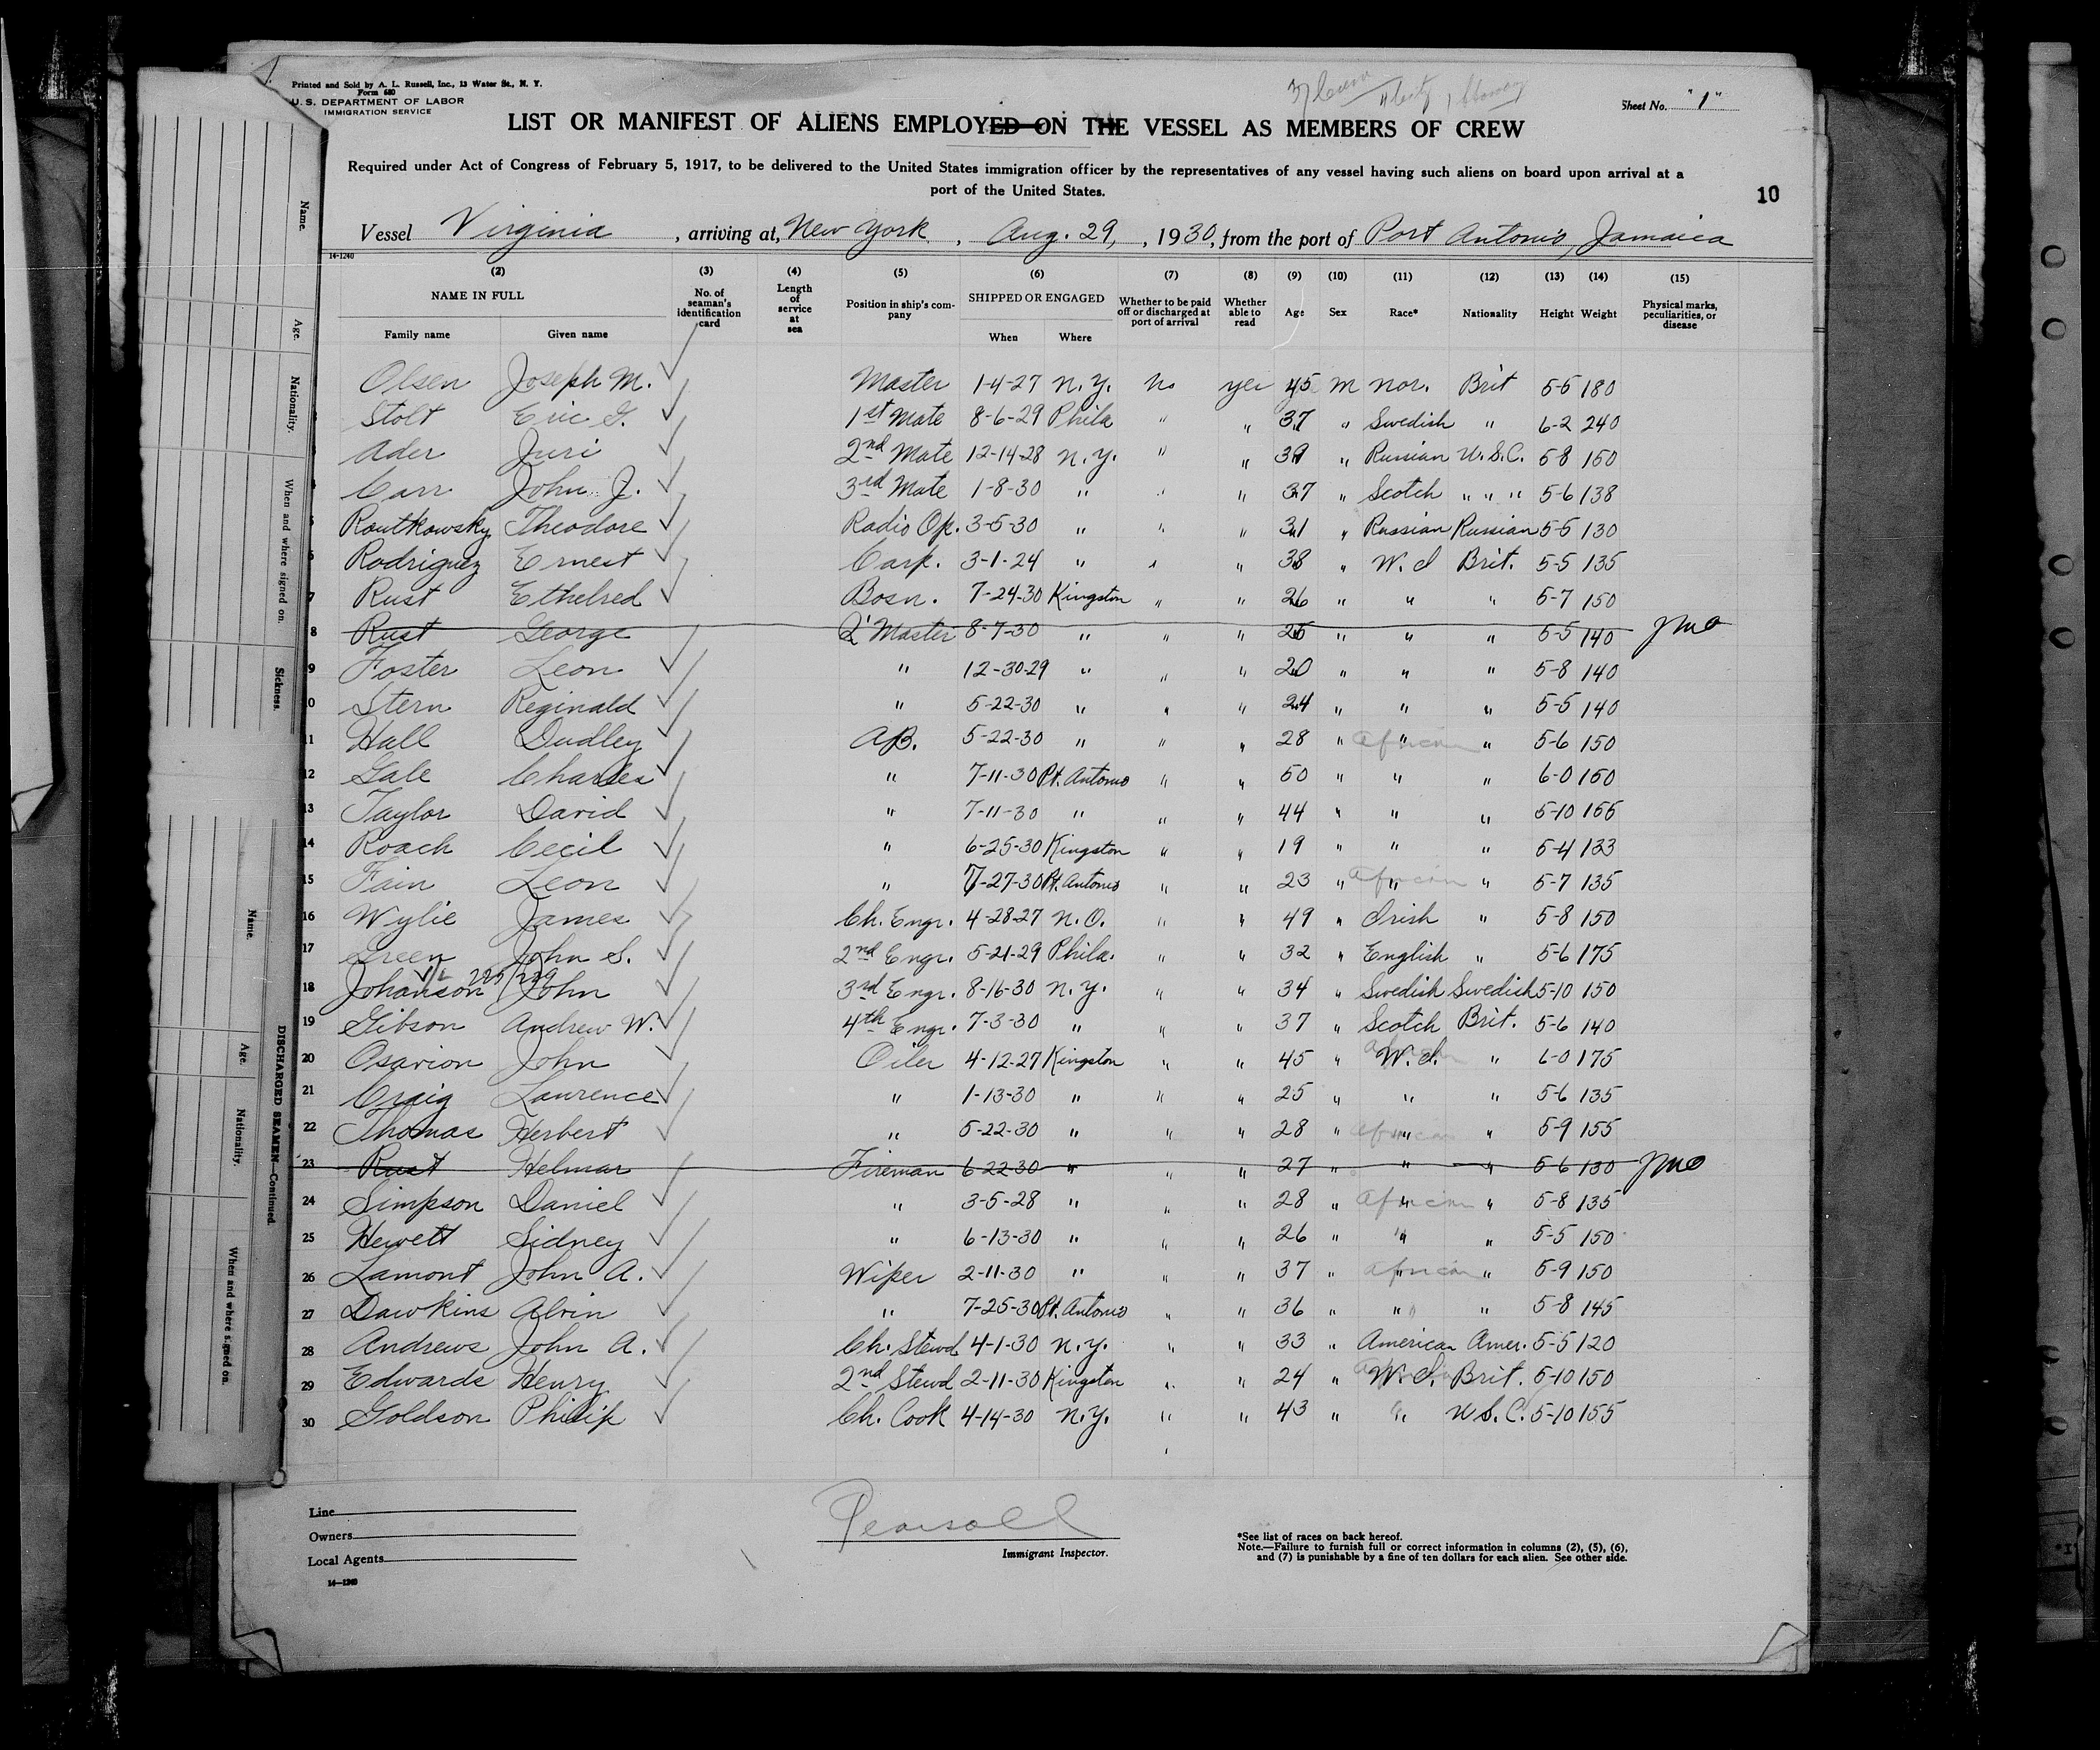 Printed and Sold by A. L. Russell, Inc., 13 Water St., N. Y.
Form 680
U. S. DEPARTMENT OF LABOR
IMMIGRATION SERVICE
Sheet No. "1"
LIST OR MANIFEST OF ALIENS EMPLOYED ON THE VESSEL AS MEMBERS OF CREW
Required under Act of Congress of February 5, 1917, to be delivered to the United States immigration officer by the representatives of any vessel having such aliens on board upon arrival at a
port of the United States.
10
Vessel Virginia, arriving at, New York, Aug. 29, 1930, from the port of Port Antonio, Jamaica
14-1240
(2) (3) (4) (5) (6) (7) (8) (9) (10) (11) (12) (13) (14) (15)
NAME IN FULL No. of seaman's identification card Length of service at sea Position in ship's company SHIPPED OR ENGAGED Whether to be paid off or discharged at port of arrival Whether able to read Age Sex Race* Nationality Height Weight Physical marks, peculiarities, or disease
Family name Given name When Where
Olsen Joseph M. Master 1-4-27 N.Y. No yes 45 M Nor. Brit 5-5 180
Stolt Eric G. 1st Mate 8-6-29 Phila " " 37 " Swedish " 6-2 240
Ader Juri 2nd Mate 12-14-28 N.Y. " " 39 " Russian U.S.C. 5-8 150
Carr John J. 3rd Mate 1-8-30 " " " 37 " Scotch " " " 5-6 138
5 Routkowsky Theodore Radio Op. 3-5-30 " " " 31 " Russian Russian 5-5 130
6 Rodriguez Ernest Carp. 3-1-24 " " " 38 " W. I Brit. 5-5 135
7 Rust Ethelred Bosn. 7-24-30 Kingston " " 26 " " " 5-7 150
8 Rust George Q'Master 8-7-30 " " " 25 " " " 5-5 140 JMO
9 Foster Leon " 12-30-29 " " " 20 " " " 5-8 140
10 Stern Reginald " 5-22-30 " " " 24 " " " 5-5 140
11 Hall Dudley A.B. 5-22-30 " " " 28 " African " " 5-6 150
12 Gale Charles " 7-11-30 Pt. Antonio " " 50 " " " 6-0 160
13 Taylor David " 7-11-30 " " " 44 " " " 5-10 166
14 Roach Cecil " 6-25-30 Kingston " " 19 " " " 5-4 133
15 Fain Leon " 7-27-30 Pt. Antonio " " 23 " African " " 5-7 135
16 Wylie James Ch. Engr. 4-28-27 N.O. " " 49 " Irish " 5-8 150
17 Green John S. 2nd Engr. 5-21-29 Phila. " " 32 " English " 5-6 175
18 Johanson John 3rd Engr. 8-16-30 N.Y. " " 34 " Swedish Swedish 5-10 150
19 Gibson Andrew W. 4th Engr. 7-3-30 " " " 37 " Scotch Brit. 5-6 140
20 Osarion John Oiler 4-12-27 Kingston " " 45 " African W. I. " 6-0 175
21 Craig Lawrence " 1-13-30 " " " 25 " " " 5-6 135
22 Thomas Herbert " 5-22-30 " " " 28 " African " " 5-9 155
23 Rust Helmar Fireman 6-22-30 " " " 27 " " " 5-6 130 JMO
24 Simpson Daniel " 3-5-28 " " " 28 " African " " 5-8 135
25 Hewett Sidney " 6-13-30 " " " 26 " " " 5-5 150
26 Lamont John A. Wiper 2-11-30 " " " 37 " African " " 5-9 150
27 Dawkins Alvin " 7-25-30 Pt. Antonio " " 36 " " " 5-8 145
28 Andrews John A. Ch. Stewd 4-1-30 N.Y. " " 33 " American Amer. 5-5 120
29 Edwards Henry 2nd Stewd 2-11-30 Kingston " " 24 " W. I. Brit. 5-10 150
30 Goldson Philip Ch. Cook 4-14-30 N.Y. " " 43 " " U.S.C. 5-10 155
Line
Owners
Local Agents
14-1240
Pearsall
Immigrant Inspector.
*See list of races on back hereof.
Note.—Failure to furnish full or correct information in columns (2), (5), (6),
and (7) is punishable by a fine of ten dollars for each alien. See other side.
Name.
Age.
Nationality.
When and where signed on.
Sickness.
DISCHARGED SEAMEN—Continued.
Name.
Age.
Nationality.
When and where signed on.